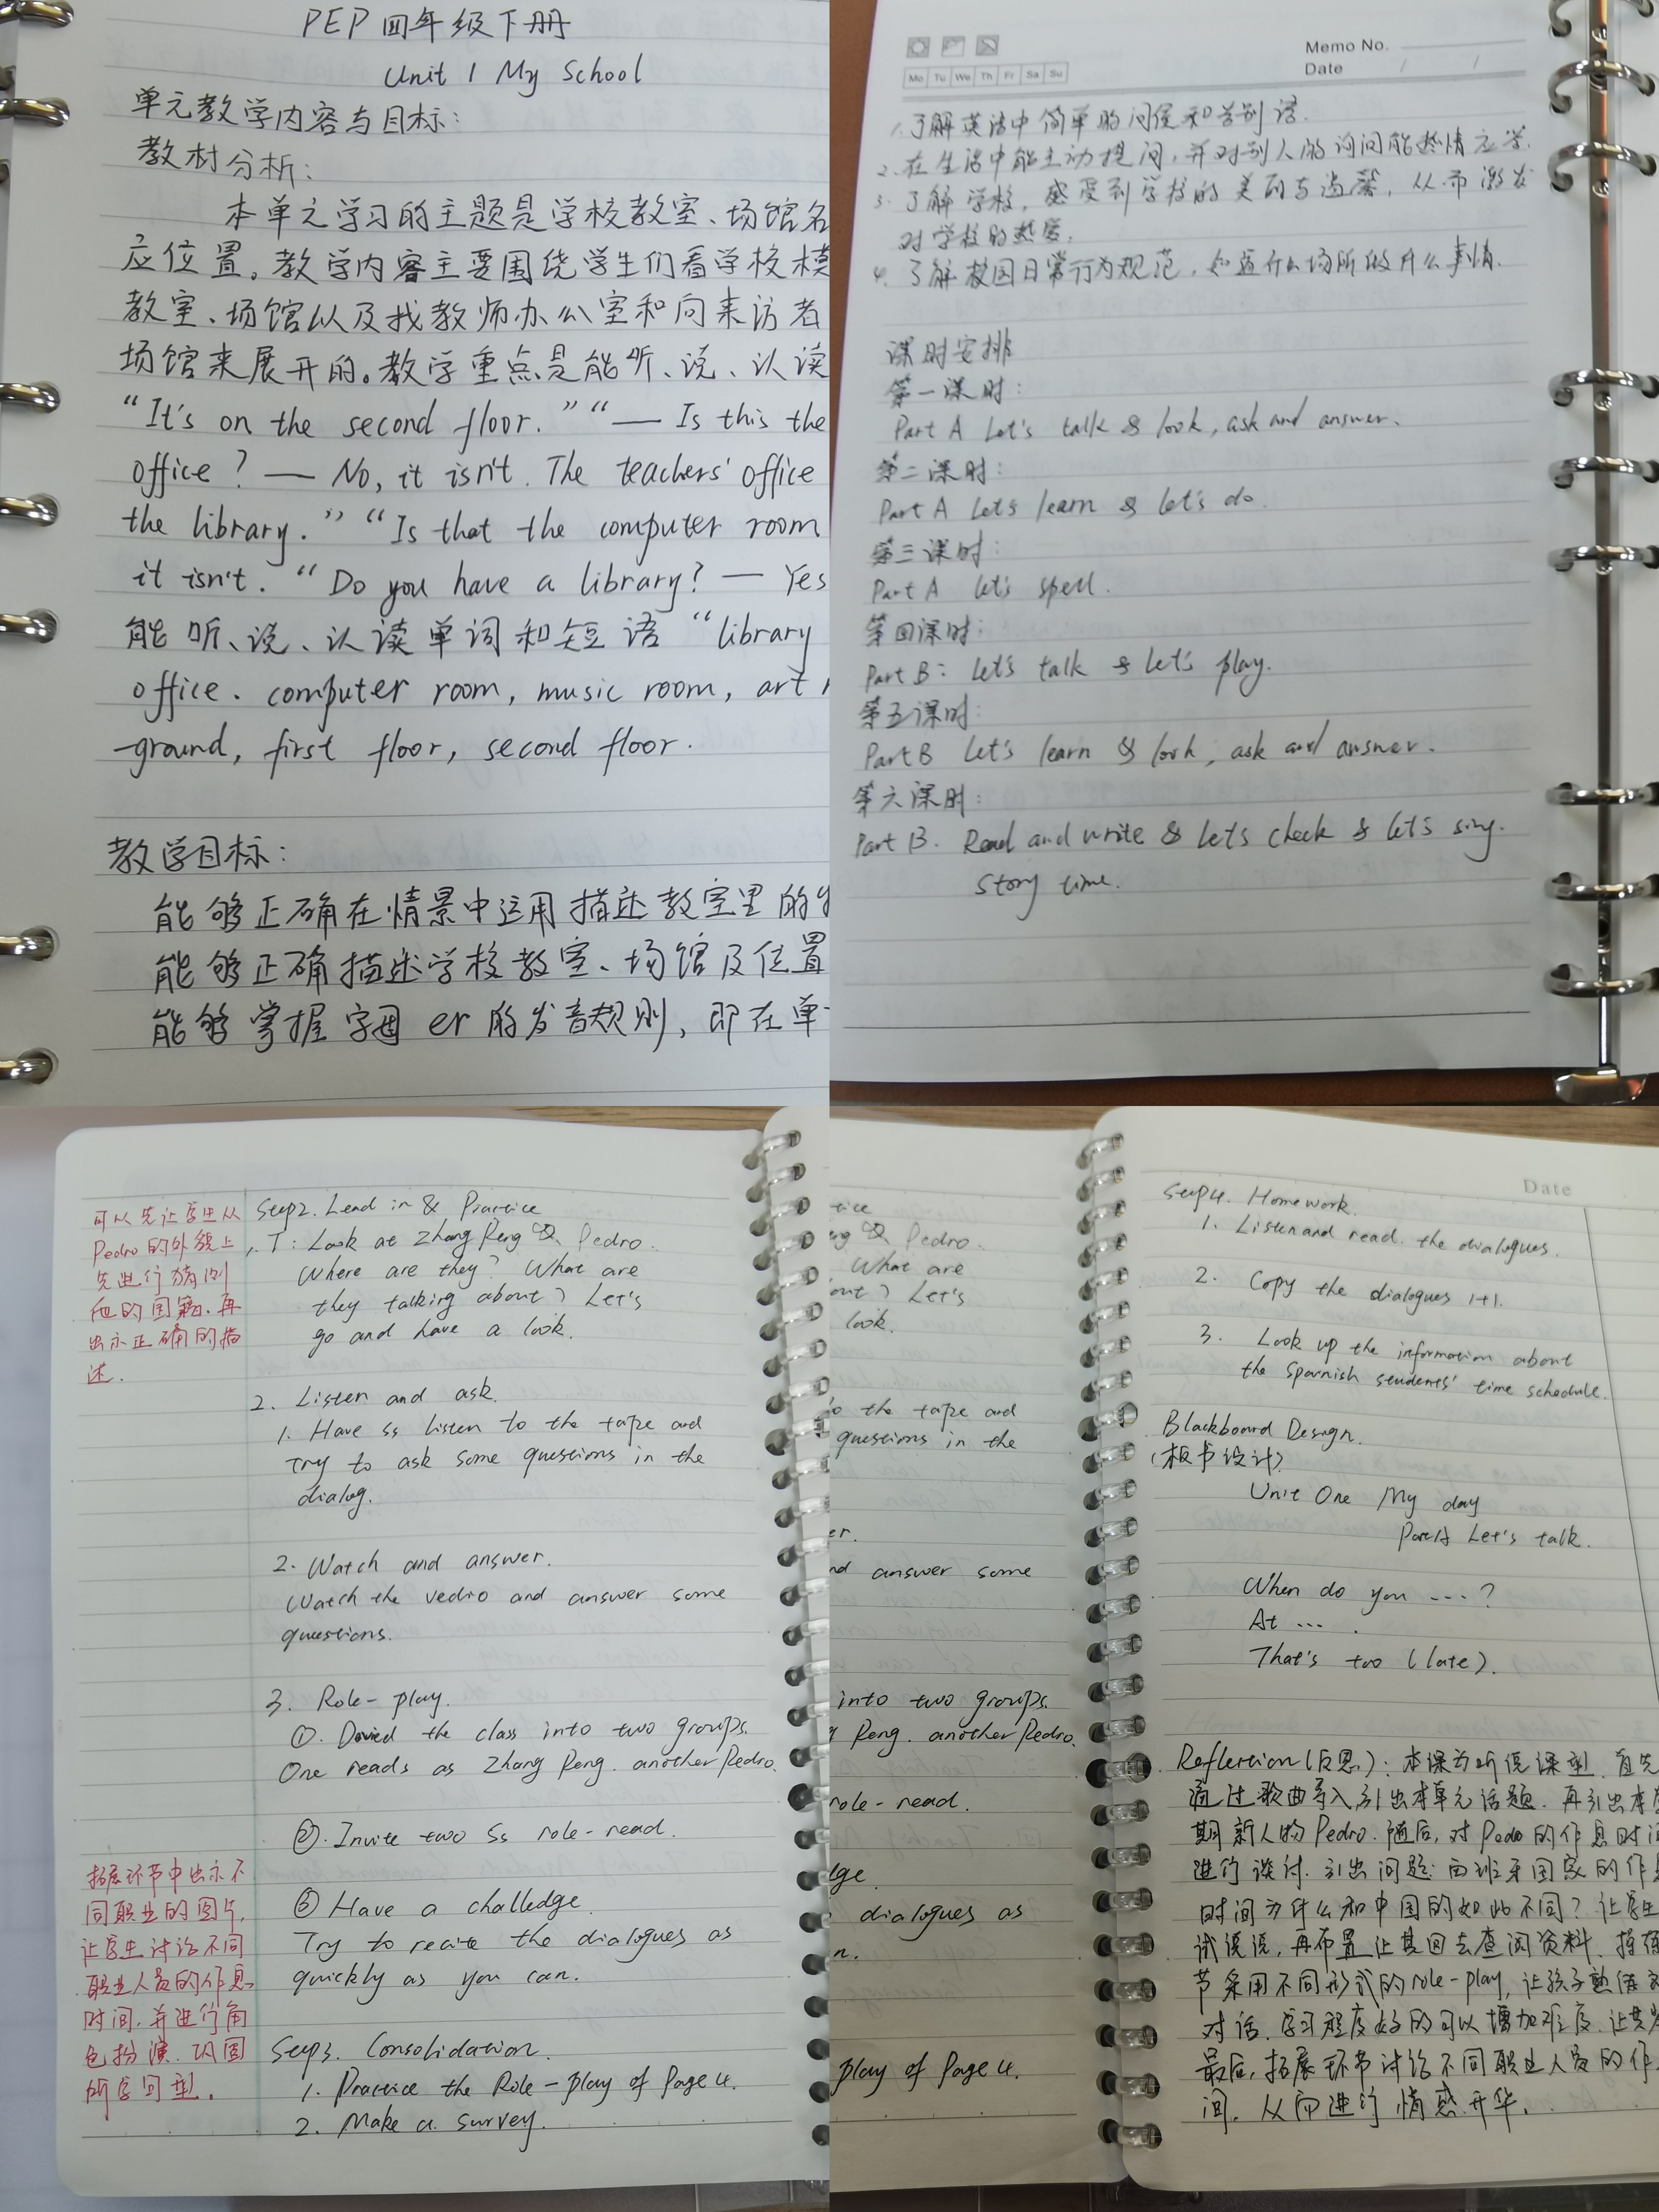 PEP 四年级下册
Unit 1 My School
单元教学内容与目标：
教材分析：
本单元学习的主题是学校教室、场馆名
应位置。教学内容主要围绕学生们看学校模
教室、场馆以及找教师办公室和向来访者
场馆来展开的。教学重点是能听、说、认读
“It's on the second floor.” “— Is this the
office ? — No, it isn't. The teachers' office
the library.” “Is that the computer room
it isn't. “Do you have a library? — Yes
能听、说、认读单词和短语 “library
office. computer room, music room, art
-ground, first floor, second floor.
教学目标：
能够正确在情景中运用描述教室里的
能够正确描述学校教室、场馆及位置
能够掌握字母 er 的发音规则, 即在单
Memo No.
Date / /
Mo Tu We Th Fr Sa Su
1. 了解英语中简单的问候和告别语.
2. 在生活中能主动提问, 并对别人的询问能热情应答.
3. 了解学校, 感受到学校的美丽与温馨, 从而激发
对学校的热爱.
4. 了解校园日常行为规范, 知道什么场所做什么事情.
课时安排
第一课时：
Part A Let's talk & look, ask and answer.
第二课时：
Part A Let's learn & let's do.
第三课时：
Part A let's spell.
第四课时：
Part B: Let's talk & let's play.
第五课时：
Part B Let's learn & look, ask and answer.
第六课时：
Part B. Read and write & let's check & let's sing.
story time.
可以先让学生从
Pedro的外貌上
先进行猜测
他的国籍. 再
出示正确的描
述.
Step2. Lead in & Practice
1. T: Look at Zhang Peng & Pedro.
Where are they? What are
they talking about? Let's
go and have a look.
2. Listen and ask.
1. Have ss listen to the tape and
try to ask some questions in the
dialog.
2. Watch and answer.
Watch the vedio and answer some
questions.
3. Role-play.
①. Dovied the class into two groups.
One reads as Zhang Peng. another Pedro.
②. Invite two Ss role-read.
③ Have a challedge.
Try to recite the dialogues as
quickly as you can.
拓展环节中出示不
同职业的图片,
让学生讨论不同
职业人员的作息
时间, 并进行角
色扮演. 巩固
所学句型.
Step3. Consolidation.
1. Practice the Role-play of Page 4.
2. Make a survey.
tice
Pedro.
What are
Let's
look.
the tape and
questions in the
er.
answer some
into two groups.
Peng. another Pedro.
role-read.
dialogues as
n.
play of Page 4.
Date
Step4. Homework.
1. Listen and read. the dialogues.
2. Copy the dialogues 1+1.
3. Look up the information about
the Spanish students' time schedule.
Blackboard Design.
(板书设计)
Unit One My day
Part A Let's talk.
When do you ...?
At ... .
That's too (late).
Reflection (反思): 本课为听说课型. 首先
通过歌曲导入引出本单元话题. 再引出本学
期新人物 Pedro. 随后, 对 Pedro 的作息时间
进行谈讨. 引出问题: 西班牙国家的作息
时间为什么和中国的如此不同? 让学生
试说说, 再布置让其回去查阅资料. 操练
节采用不同形式的role-play, 让孩子熟练
对话. 学习程度好的可以增加难度. 让其
最后, 拓展环节讨论不同职业人员的作
间. 从而进行情感升华.